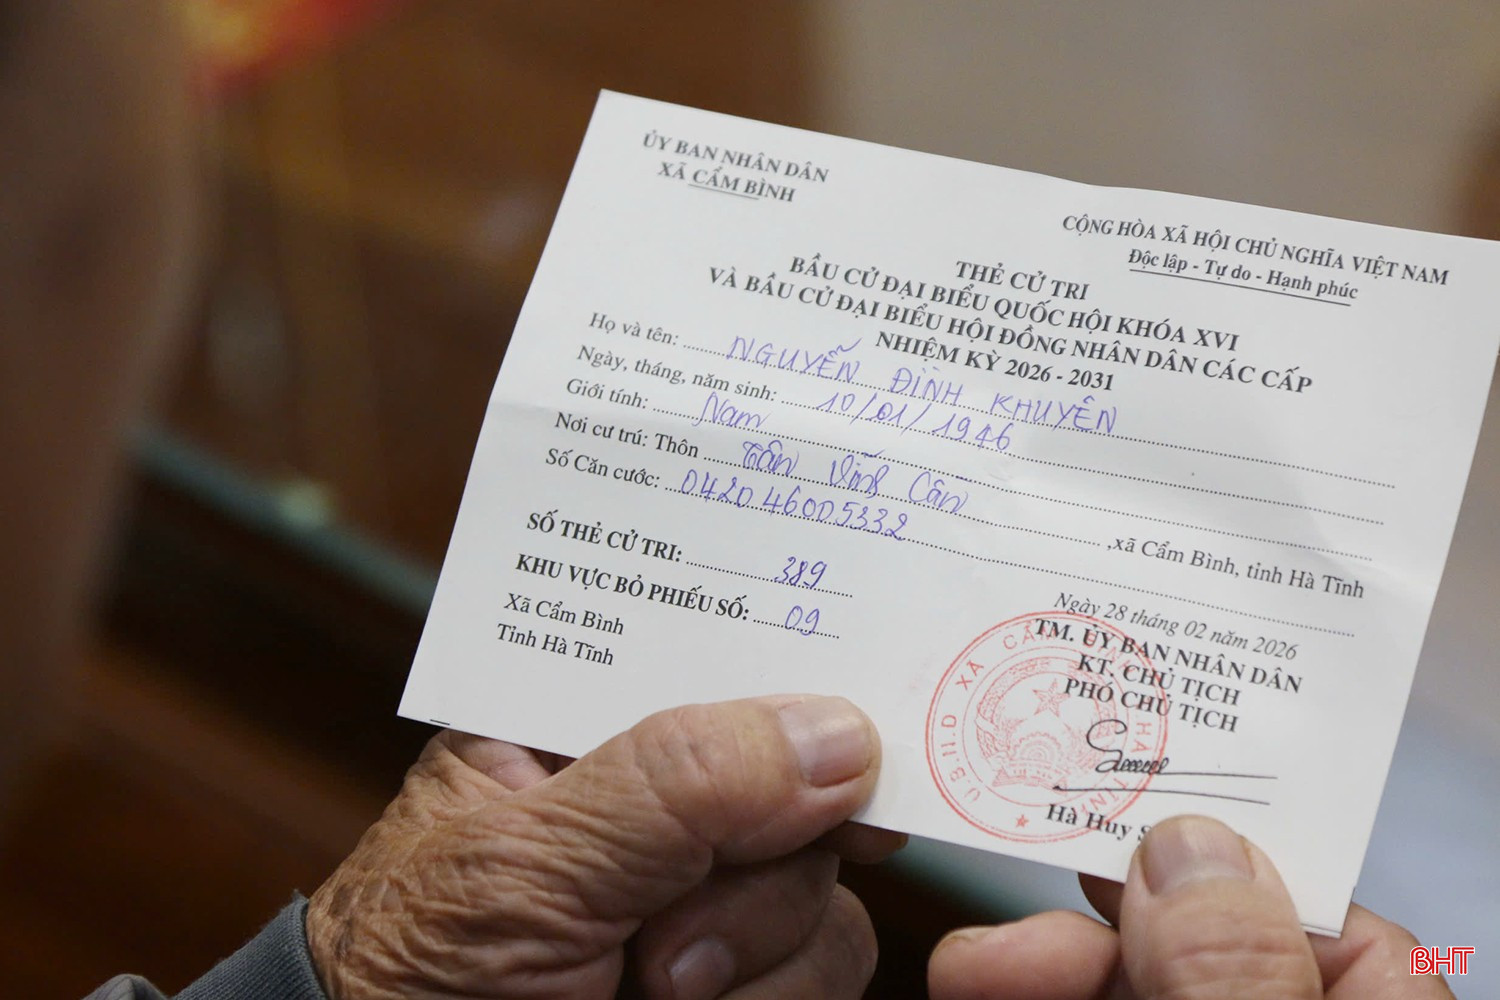 ỦY BAN NHÂN DÂN
XÃ CẨM BÌNH
CỘNG HÒA XÃ HỘI CHỦ NGHĨA VIỆT NAM
Độc lập - Tự do - Hạnh phúc
THẺ CỬ TRI
BẦU CỬ ĐẠI BIỂU QUỐC HỘI KHÓA XVI
VÀ BẦU CỬ ĐẠI BIỂU HỘI ĐỒNG NHÂN DÂN CÁC CẤP
NHIỆM KỲ 2026 - 2031
Họ và tên: NGUYỄN ĐÌNH KHUYÊN
Ngày, tháng, năm sinh: 10/01/1946
Giới tính: Nam
Nơi cư trú: Thôn Tân Vĩnh Cần, xã Cẩm Bình, tỉnh Hà Tĩnh
Số Căn cước: 042046005332
SỐ THẺ CỬ TRI: 389
KHU VỰC BỎ PHIẾU SỐ: 09
Xã Cẩm Bình
Tỉnh Hà Tĩnh
Ngày 28 tháng 02 năm 2026
TM. ỦY BAN NHÂN DÂN
KT. CHỦ TỊCH
PHÓ CHỦ TỊCH
U.B.N.D XÃ CẨM BÌNH HÀ TĨNH
Hà Huy
BHT